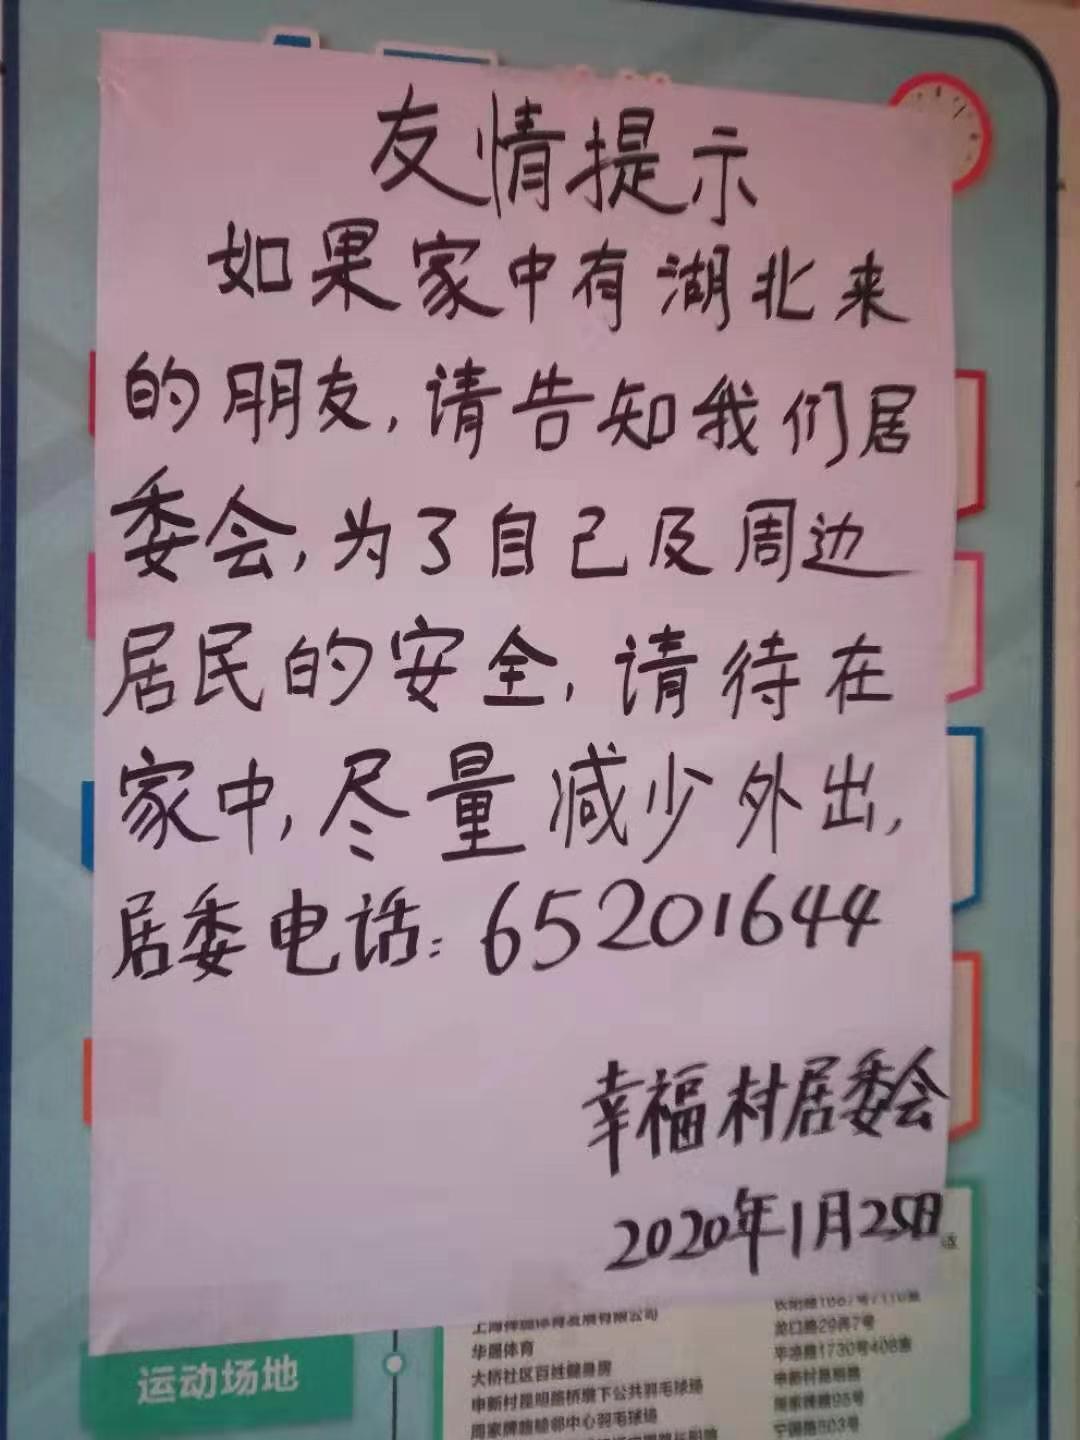 友情提示
如果家中有湖北来
的朋友,请告知我们居
委会,为了自己及周边
居民的安全,请待在
家中,尽量减少外出,
居委电话:65201644
幸福村居委会
2020年1月25日
华晟体育
龙口路29弄7号
大桥社区百姓健身房
平凉路1730号408室
申新村昆明路桥墩下公共羽毛球场
申新村昆明路
周家牌路睦邻中心羽毛球场
周家牌路95号
宁国路503号
运动场地